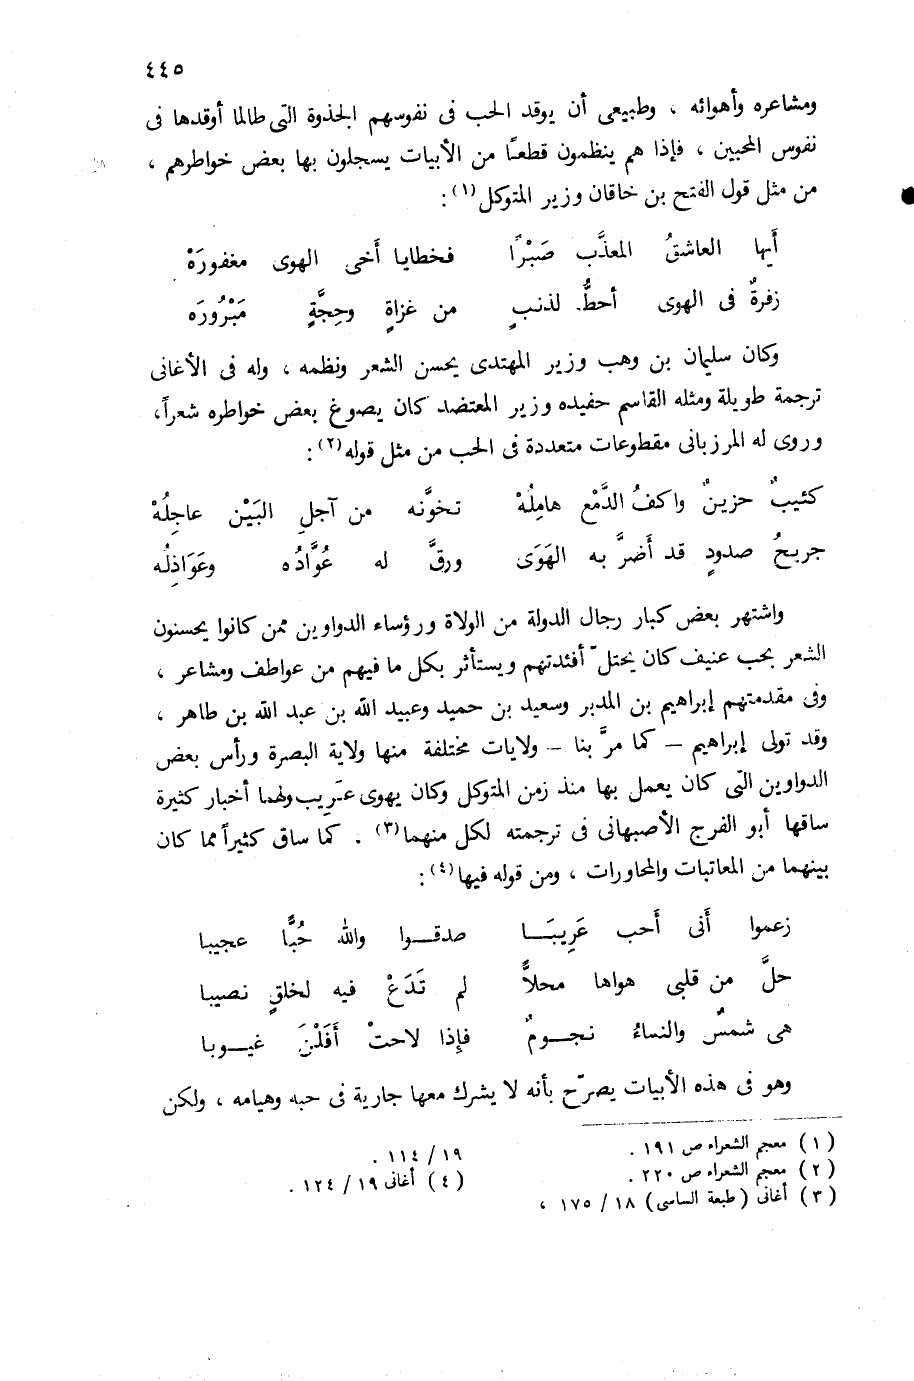 ٤٤٥
ومشاعره وأهوائه ، وطبيعى أن يوقد الحب فى نفوسهم الجذوة التى طالما أوقدها فى
نفوس المحبين ، فإذا هم ينظمون قطعًا من الأبيات يسجلون بها بعض خواطرهم ،
من مثل قول الفتح بن خاقان وزير المتوكل (١) :
أَيها العاشقُ المعذَّب صَبْرًا فخطايا أَخى الهوى مغفورَهْ
زفرةٌ فى الهوى أحطُّ لذنبٍ من غزاةٍ وحِجَّةٍ مَبْرُورَه
وكان سليمان بن وهب وزير المهتدى يحسن الشعر ونظمه ، وله فى الأغانى
ترجمة طويلة ومثله القاسم حفيده وزير المعتضد كان يصوغ بعض خواطره شعراً،
وروى له المرزبانى مقطوعات متعددة فى الحب من مثل قوله (٢) :
كئيبٌ حزينٌ واكفُ الدَّمْع هامِلُهْ تخوَّنه من آجلِ البَيْن عاجِلُهْ
جريحُ صدودٍ قد أَضرَّ به الهَوَى ورقَّ له عُوَّادُه وعَوَاذِلُه
واشتهر بعض كبار رجال الدولة من الولاة ورؤساء الدواوين ممن كانوا يحسنون
الشعر بحب عنيف كان يحتلّ أفئدتهم ويستأثر بكل ما فيهم من عواطف ومشاعر ،
وفى مقدمتهم إبراهيم بن المدبر وسعيد بن حميد وعبيد الله بن عبد الله بن طاهر ،
وقد تولى إبراهيم – كما مرَّ بنا – ولايات مختلفة منها ولاية البصرة ورأس بعض
الدواوين التى كان يعمل بها منذ زمن المتوكل وكان يهوى عَرِيب ولهما أخبار كثيرة
ساقها أبو الفرج الأصبهانى فى ترجمته لكل منهما (٣) . كما ساق كثيراً مما كان
بينهما من المعاتبات والمحاورات ، ومن قوله فيها (٤) :
زعموا أَنى أَحب عَرِيبَـــا صدقـــوا والله حُبًّا عجيبا
حلَّ من قلبى هواها محلاًّ لم تَدَعْ فيه لخلقٍ نصيبا
هى شمسٌ والنساءُ نجـــومٌ فإِذا لاحتْ أَفَلْنَ غيـــوبا
وهو فى هذه الأبيات يصرّح بأنه لا يشرك معها جارية فى حبه وهيامه ، ولكن
( ١ ) معجم الشعراء ص ١٩١ .
( ٢ ) معجم الشعراء ص ٢٢٠ .
( ٣ ) أغانى ( طبعة الساسى ) ١٨ / ١٧٥ ،
١٩ / ١١٤ .
( ٤ ) أغانى ١٩ / ١٢٤ .